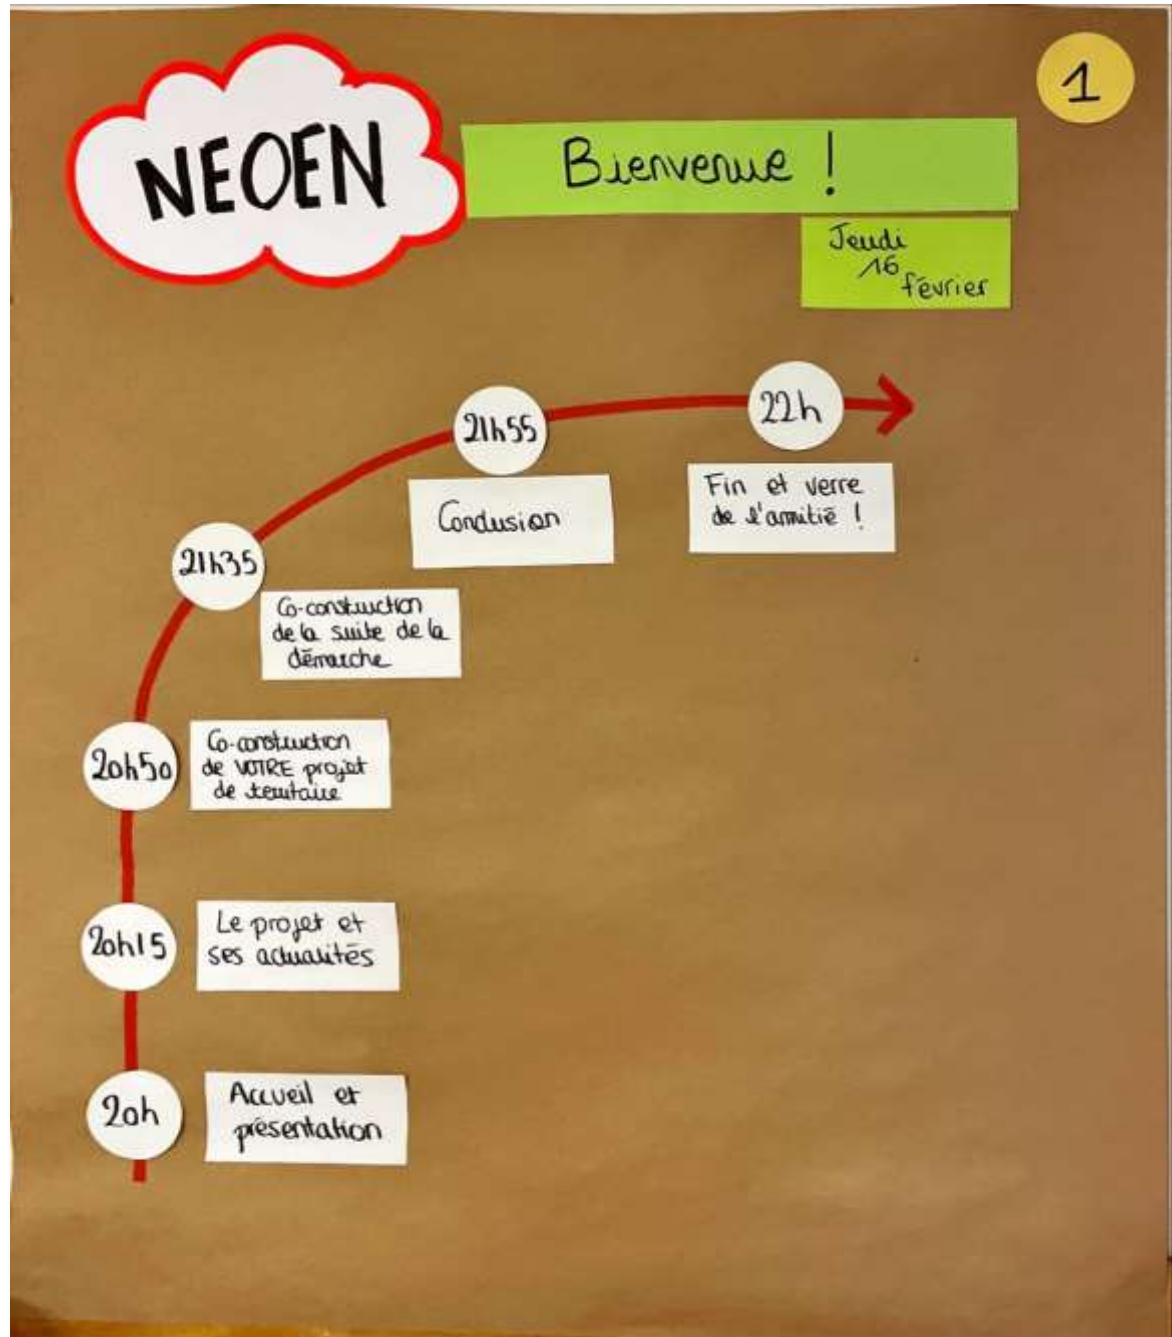 1
NEOEN
Bienvenue !
Jeudi
16
février
21h55
Conclusion
22h
Fin et verre
de l'amitié !
21h35
Co-construction
de la suite de la
démarche
20h50
Co-construction
de VOTRE projet
de territoire
20h15
Le projet et
ses actualités
20h
Accueil et
présentation